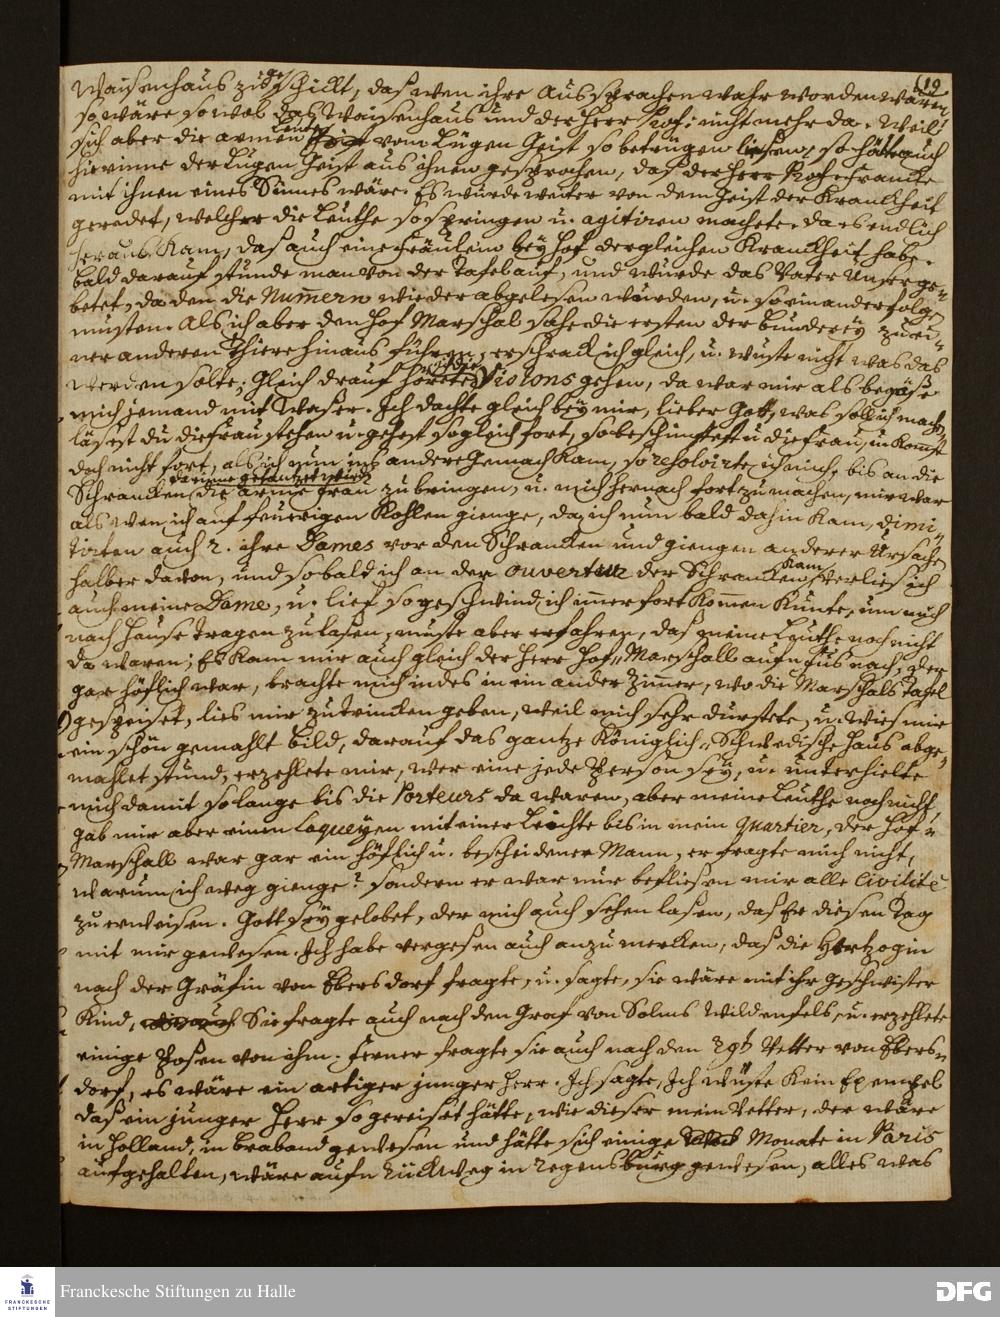 (19
Waisenhaus zugeschickt, daß wen ihre Aussprachen wahr worden wären,
so wäre so wol das Waisenhaus und der Herr Prof: nicht mehr da. Weil
sich aber die armen Leute vom Lügen Geist so betrügen liesen, so hätte auch
hierinne der Lügen Geist aus ihnen gesprochen, daß der Herr Prof. Francke
mit ihnen eines Sinnes wäre. Es wurde weiter von dem Geist der Kranckheit
geredet, welcher die Leuthe so springen u. agitiren machete. da es endlich
heraus kam, daß auch eine Fräulein bey Hof dergleichen Kranckheit habe.
bald darauf stunde man von der Tafel auf, und wurde das Vater Unser ge-
betet, da den die Numern wieder abgelesen wurden, u. so einander folgen
musten. Als ich aber den Hof Marschal sahe die ersten der zu ei-
ner anderen Thiere hinaus führen, erschrack ich gleich, u. wuste nicht was das
werden solte; Gleich drauf hörete ich die Violons gehen, da war mir als begöße
mich jemand mit Waßer. Ich dachte gleich bey mir, lieber Gott, was soll ich machen
läsest du die Frau stehen u. gehest so gleich fort, so beschimpfest u die Frau, u. komst
doch nicht fort, als ich nun ins andere Gemach kam, so resolvirte ich mich, bis an die
Schrancken darinne getantzet wird die arme Frau zu bringen, u. mich hernach fort zu machen, mir war
als wen ich auf feurigen Kohlen gienge, da ich nun bald dahin kam, dimi-
tirten auch 2. ihre Dames vor den Schrancken und giengen anderer Ursache
halber davon, und sobald ich an der ouvertur der Schrancken kam, verlies ich
auch meine Dame, u. lief so geschwind ich imer fort komen kunte, um mich
nach Hause tragen zu laßen, muste aber erfahren, daß meine Leuthe noch nicht
da waren; Es kam mir auch gleich der Herr Hof-Marschall aufn Fus nach, der
gar höflich war, brachte mich indes in ein ander Zimer, wo die Marschals Tafel
gespeiset, lies mir zu trincken geben, weil mich sehr durstete, u. wies mir
ein schön gemahlt Bild, darauf das gantze Königlich-Schwedische Haus abge-
mahlet stund, erzehlete mir, wer eine jede Person sey, u. unterhielte
mich damit so lange bis die Porteurs da waren, aber meine Leuthe noch nicht,
gab mir aber einen Laqueyen mit einer Leichte bis in mein Quartier, der Hof-
Marschall war gar ein höflich u. bescheidener Mann, er fragte mich nicht,
warum ich weg gienge? sondern er war nur befliesen mir alle Civilité
zu erweisen. Gott sey gelobet, der mich auch sehen lasen, daß Er diesen Tag
mit mir gewesen. Ich habe vergesen auch anzumercken, daß die Hertzogin
nach der Gräfin von Ebersdorf fragte, u. sagte, sie wäre mit ihr Geschwister
Kind, Sie fragte auch nach den Graf von Solms Wildenfels, u. erzehlete
einige Posen von ihm. Ferner fragte sie auch nach den Vetter von Ebers-
dorf, es wäre ein artiger junger Herr. Ich sagte, Ich wüste kein Exempel
daß ein junger Herr so gereiset hätte, wie dieser mein Vetter, der wäre
in Holland, in Braband gewesen und hätte sich einige Monate in Paris
aufgehalten, wäre aufn Rückweg in Regensburg gewesen, alles was
FRANCKESCHE
STIFTUNGEN
Franckesche Stiftungen zu Halle
DFG